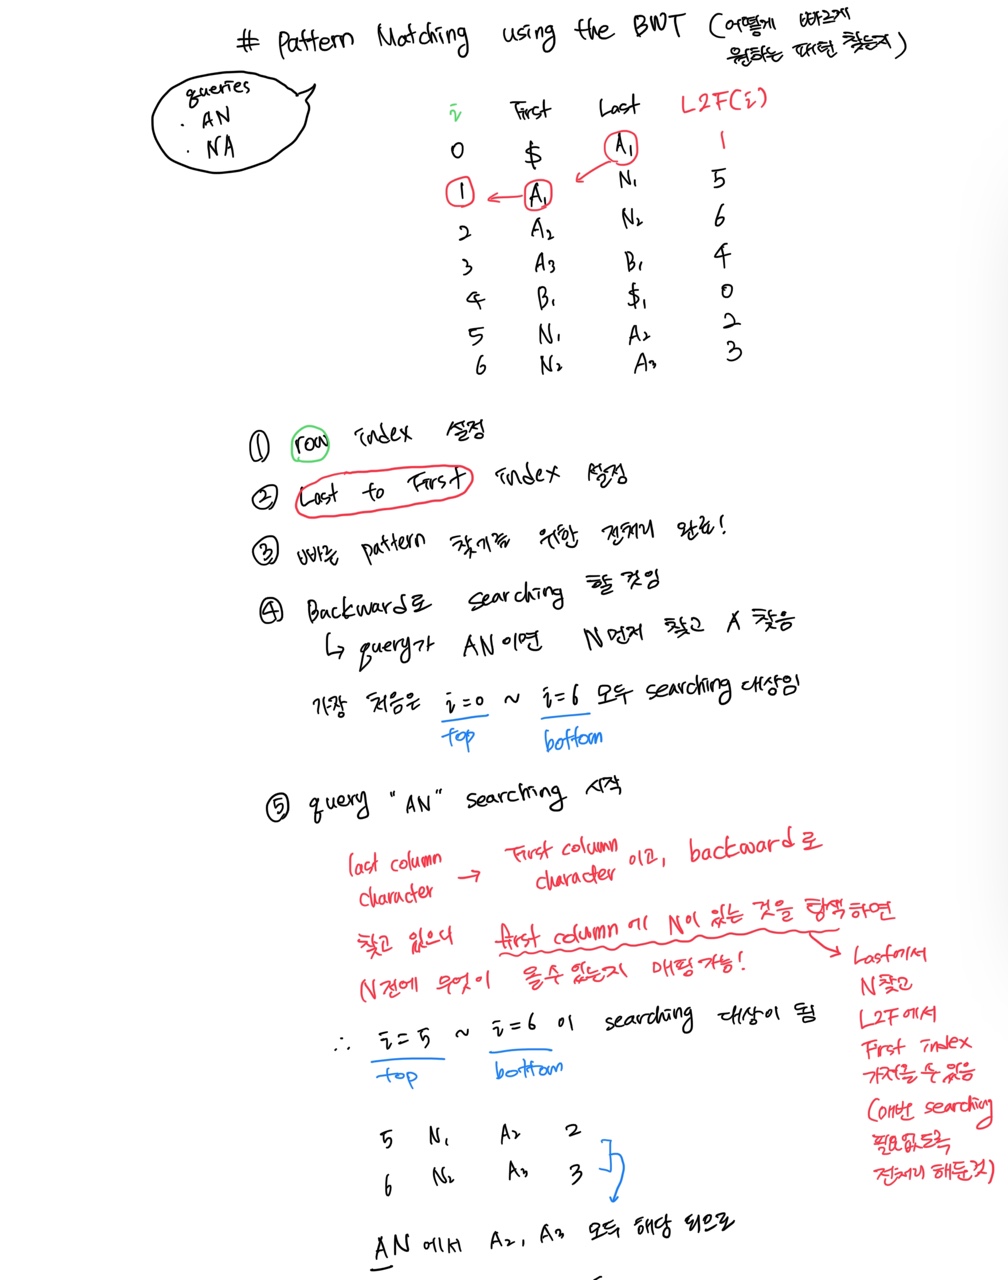 # Pattern Matching using the BWT (어떻게 빠르게
원하는 패턴 찾는지)
queries
· AN
· NA
i First Last L2F(i)
0 $ A₁ 1
1 A₁ N₁ 5
2 A₂ N₂ 6
3 A₃ B₁ 4
4 B₁ $₁ 0
5 N₁ A₂ 2
6 N₂ A₃ 3
① row index 설정
② Last to First index 설정
③ 빠른 pattern 찾기를 위한 전처리 완료!
④ Backward로 searching 할 것임
↳ query가 AN이면 N먼저 찾고 A 찾음
가장 처음은 i=0 ~ i=6 모두 searching 대상임
top bottom
⑤ query "AN" searching 시작
last column character → First column character 이고, backward로
찾고 있으니 first column에 N이 있는 것을 탐색하면
N전에 무엇이 올수 있는지 매핑가능!
Last에서
N찾고
L2F에서
First index
가져올 수 있음
(매번 searching
필요없도록
전처리 해둔것)
∴ i=5 ~ i=6 이 searching 대상이 됨
top bottom
5 N₁ A₂ 2
6 N₂ A₃ 3
AN에서 A₂, A₃ 모두 해당 되므로